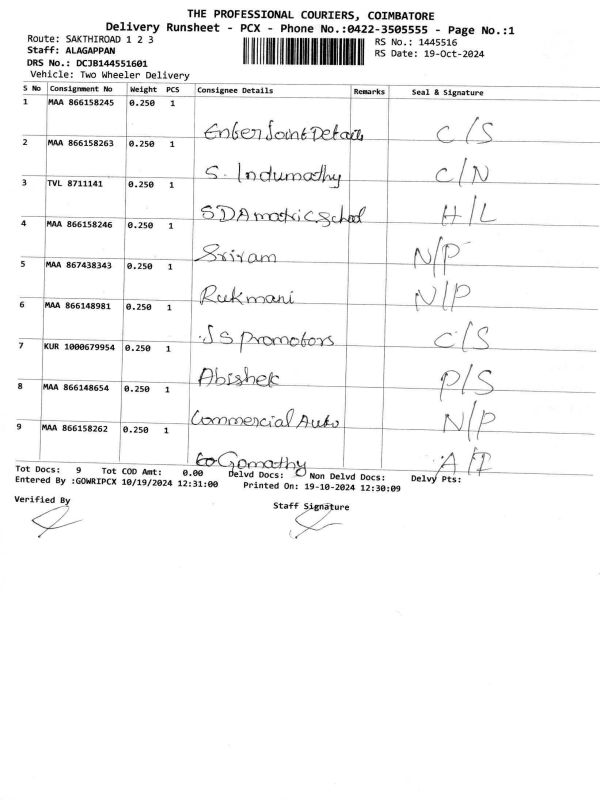 THE PROFESSIONAL COURIERS, COIMBATORE
Delivery Runsheet - PCX - Phone No.:0422-3505555 - Page No.:1
Route: SAKTHIROAD 1 2 3 RS No.: 1445516
Staff: ALAGAPPAN RS Date: 19-Oct-2024
DRS No.: DCJB144551601
Vehicle: Two Wheeler Delivery
S No Consignment No Weight PCS Consignee Details Remarks Seal & Signature
1 MAA 866158245 0.250 1
Enber Joint Details C/S
2 MAA 866158263 0.250 1
S. Indumathy C/N
3 TVL 8711141 0.250 1
SDA matric School H/L
4 MAA 866158246 0.250 1
Sriram N/P
5 MAA 867438343 0.250 1
Rukmani N/P
6 MAA 866148981 0.250 1
JS Promotors C/S
7 KUR 1000679954 0.250 1
Abishek P/S
8 MAA 866148654 0.250 1
Commercial Auto N/P
9 MAA 866158262 0.250 1
Gomathy
Tot Docs: 9 Tot COD Amt: 0.00 Delvd Docs: Non Delvd Docs: Delvy Pts:
Entered By :GOWRIPCX 10/19/2024 12:31:00 Printed On: 19-10-2024 12:30:09
Verified By Staff Signature